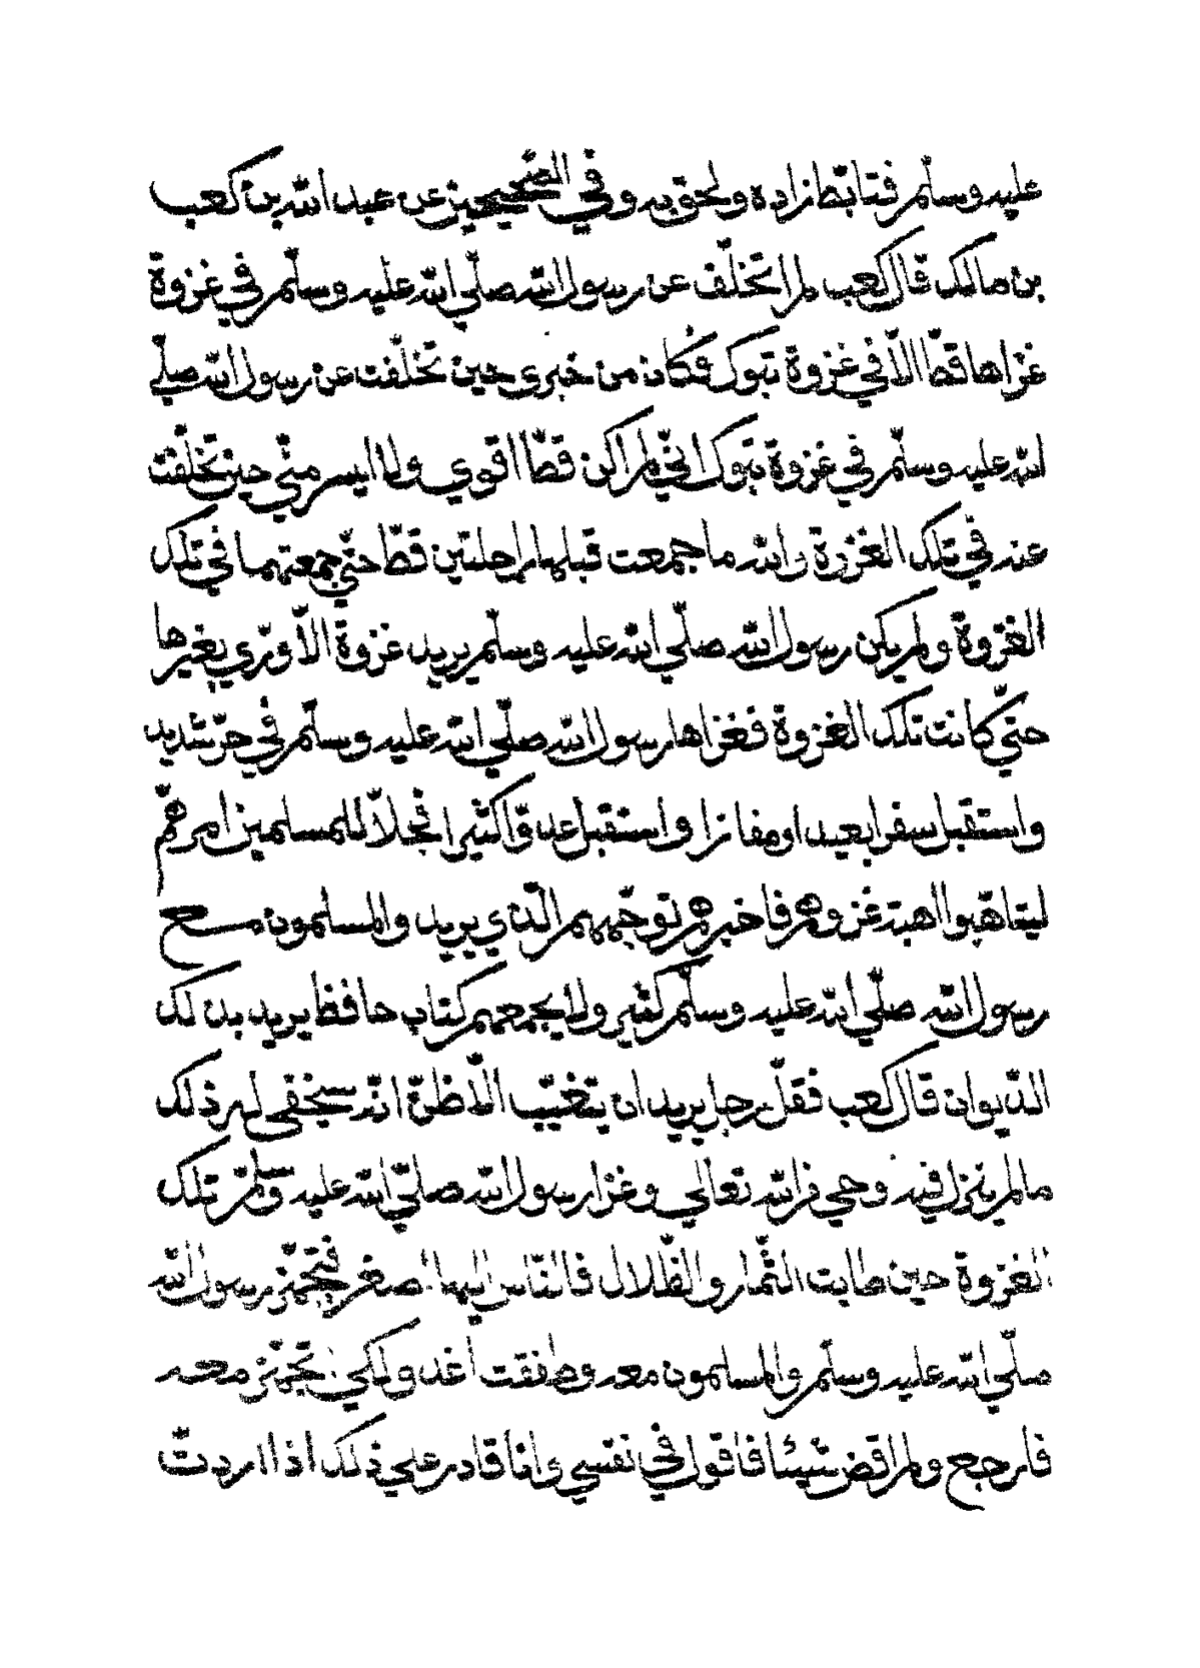 عليه وسلّم فتابّط زاده ولحق به وفي الصّحيحين عن عبد اللّه بن كعب
بن مالك قال كعب لم اتخلّف عن رسول اللّه صلّي اللّه عليه وسلّم في غزوة
غزاها قطّ الّا في غزوة تبوك فكان من خبري حين تخلّفت عن رسول اللّه صلّي
اللّه عليه وسلّم في غزوة تبوك انّي لم اكن قطّ اقوي ولا ايسر منّي حين تخلّفت
عنه في تلك الغزوة واللّه ما جمعت قبلها راحلتين قطّ حتّي جمعتهما في تلك
الغزوة ولم يكن رسول اللّه صلّي اللّه عليه وسلّم يريد غزوة الّا ورّي بغيرها
حتّي كانت تلك الغزوة فغزاها رسول اللّه صلّي اللّه عليه وسلّم في حرّ شديد
واستقبل سفرا بعيدا ومفازا واستقبل عدوّا كثيرا فجلّا للمسلمين امرهمّ
ليتاهّبوا اهبة غزوهم فاخبرهم توجّههم الّذي يريد والمسلمون مع
رسول اللّه صلّي اللّه عليه وسلّم كثير ولا يجمعهم كتاب حافظ يريد بذلك
الدّيوان قال كعب فقلّ رجل يريد ان يتغيّب الّا ظنّ انّه سيخفي له ذلك
مالم ينزل فيه وحي من اللّه تعالي وغزا رسول اللّه صلّي اللّه عليه وسلّم تلك
الغزوة حين طابت الثّمار والظّلال فالنّاس اليها اصغر فتجهّز رسول اللّه
صلّي اللّه عليه وسلّم والمسلمون معه وطفقت اغدو لكي اتجهّز معه
فارجع ولم اقض شيئا فاقول في نفسي وانا قادر علي ذلك اذا اردتّ